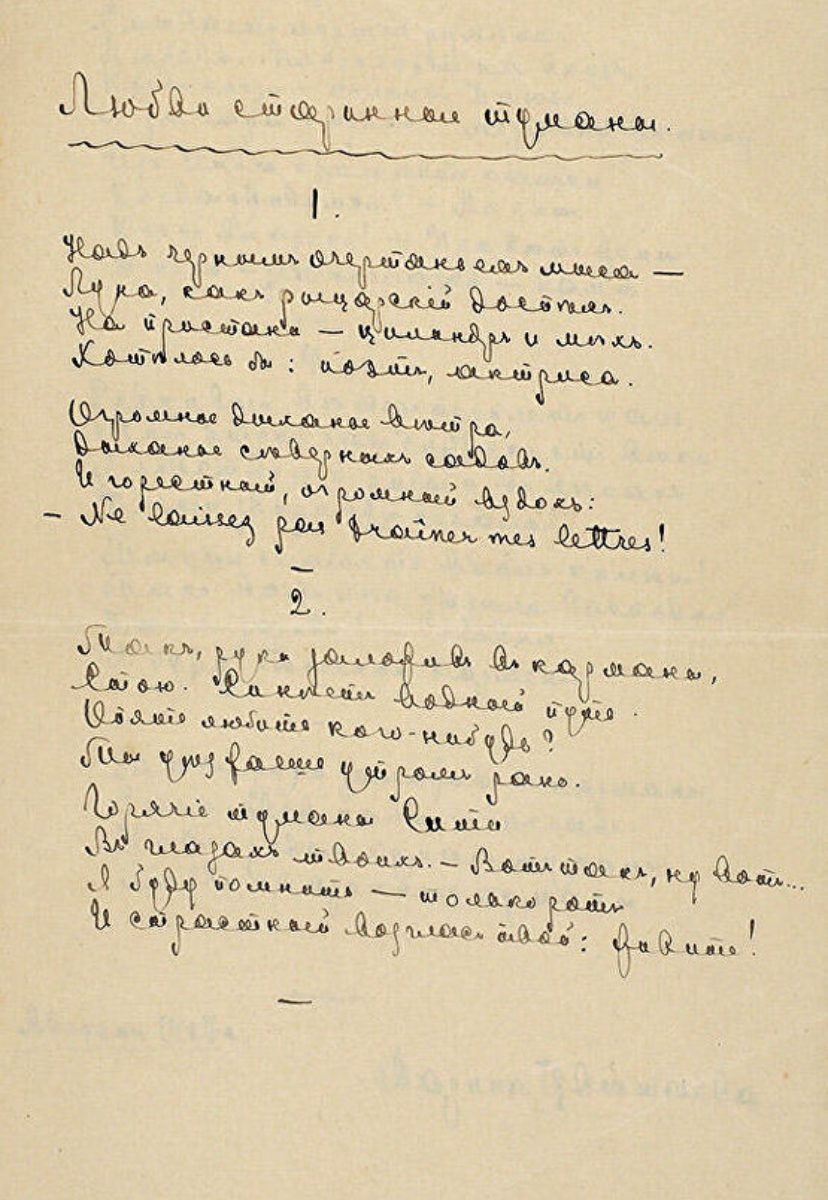 Любви старинные туманы.
1.
Надъ чернымъ очертаньемъ мыса —
Луна, какъ рыцарскій доспѣхъ.
На пристани — цилиндръ и мѣхъ.
Хотѣлось бы: поэтъ, актриса.
Огромное дыханье вѣтра,
Дыханье сѣверныхъ садовъ.
И горестный, огромный вздохъ:
— Ne laissez pas traîner mes lettres!
2.
Такъ, руки заложивъ въ карманы,
Стою. Синѣетъ водный путь.
Опять любить кого-нибудь?
Ты уѣзжаешь утромъ рано.
Горячіе туманы Сити
Въ глазахъ твоихъ. — Вотъ такъ, ну вотъ...
Я буду помнить — только ротъ
И страстный возгласъ твой: Живите!